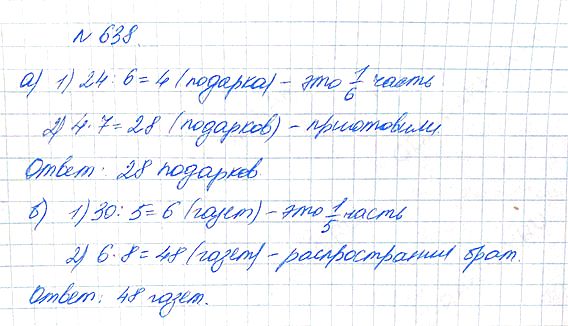 № 638.
а) 1) 24 : 6 = 4 (подарка) – это 1/6 часть
2) 4 · 7 = 28 (подарков) – приготовили
Ответ: 28 подарков.
б) 1) 30 : 5 = 6 (газет) – это 1/5 часть
2) 6 · 8 = 48 (газет) – распространил брат.
Ответ: 48 газет.